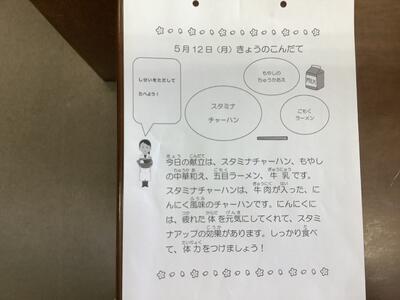 5月12日（月）きょうのこんだて
しせいをただして
たべよう！
もやしの
ちゅうかあえ
スタミナ
チャーハン
ごもく
ラーメン
今日の献立は、スタミナチャーハン、もやし
の中華和え、五目ラーメン、牛乳です。
スタミナチャーハンは、牛肉が入った、に
んにく風味のチャーハンです。にんにくに
は、疲れた体を元気にしてくれて、スタミ
ナアップの効果があります。しっかり食べ
て、体力をつけましょう！